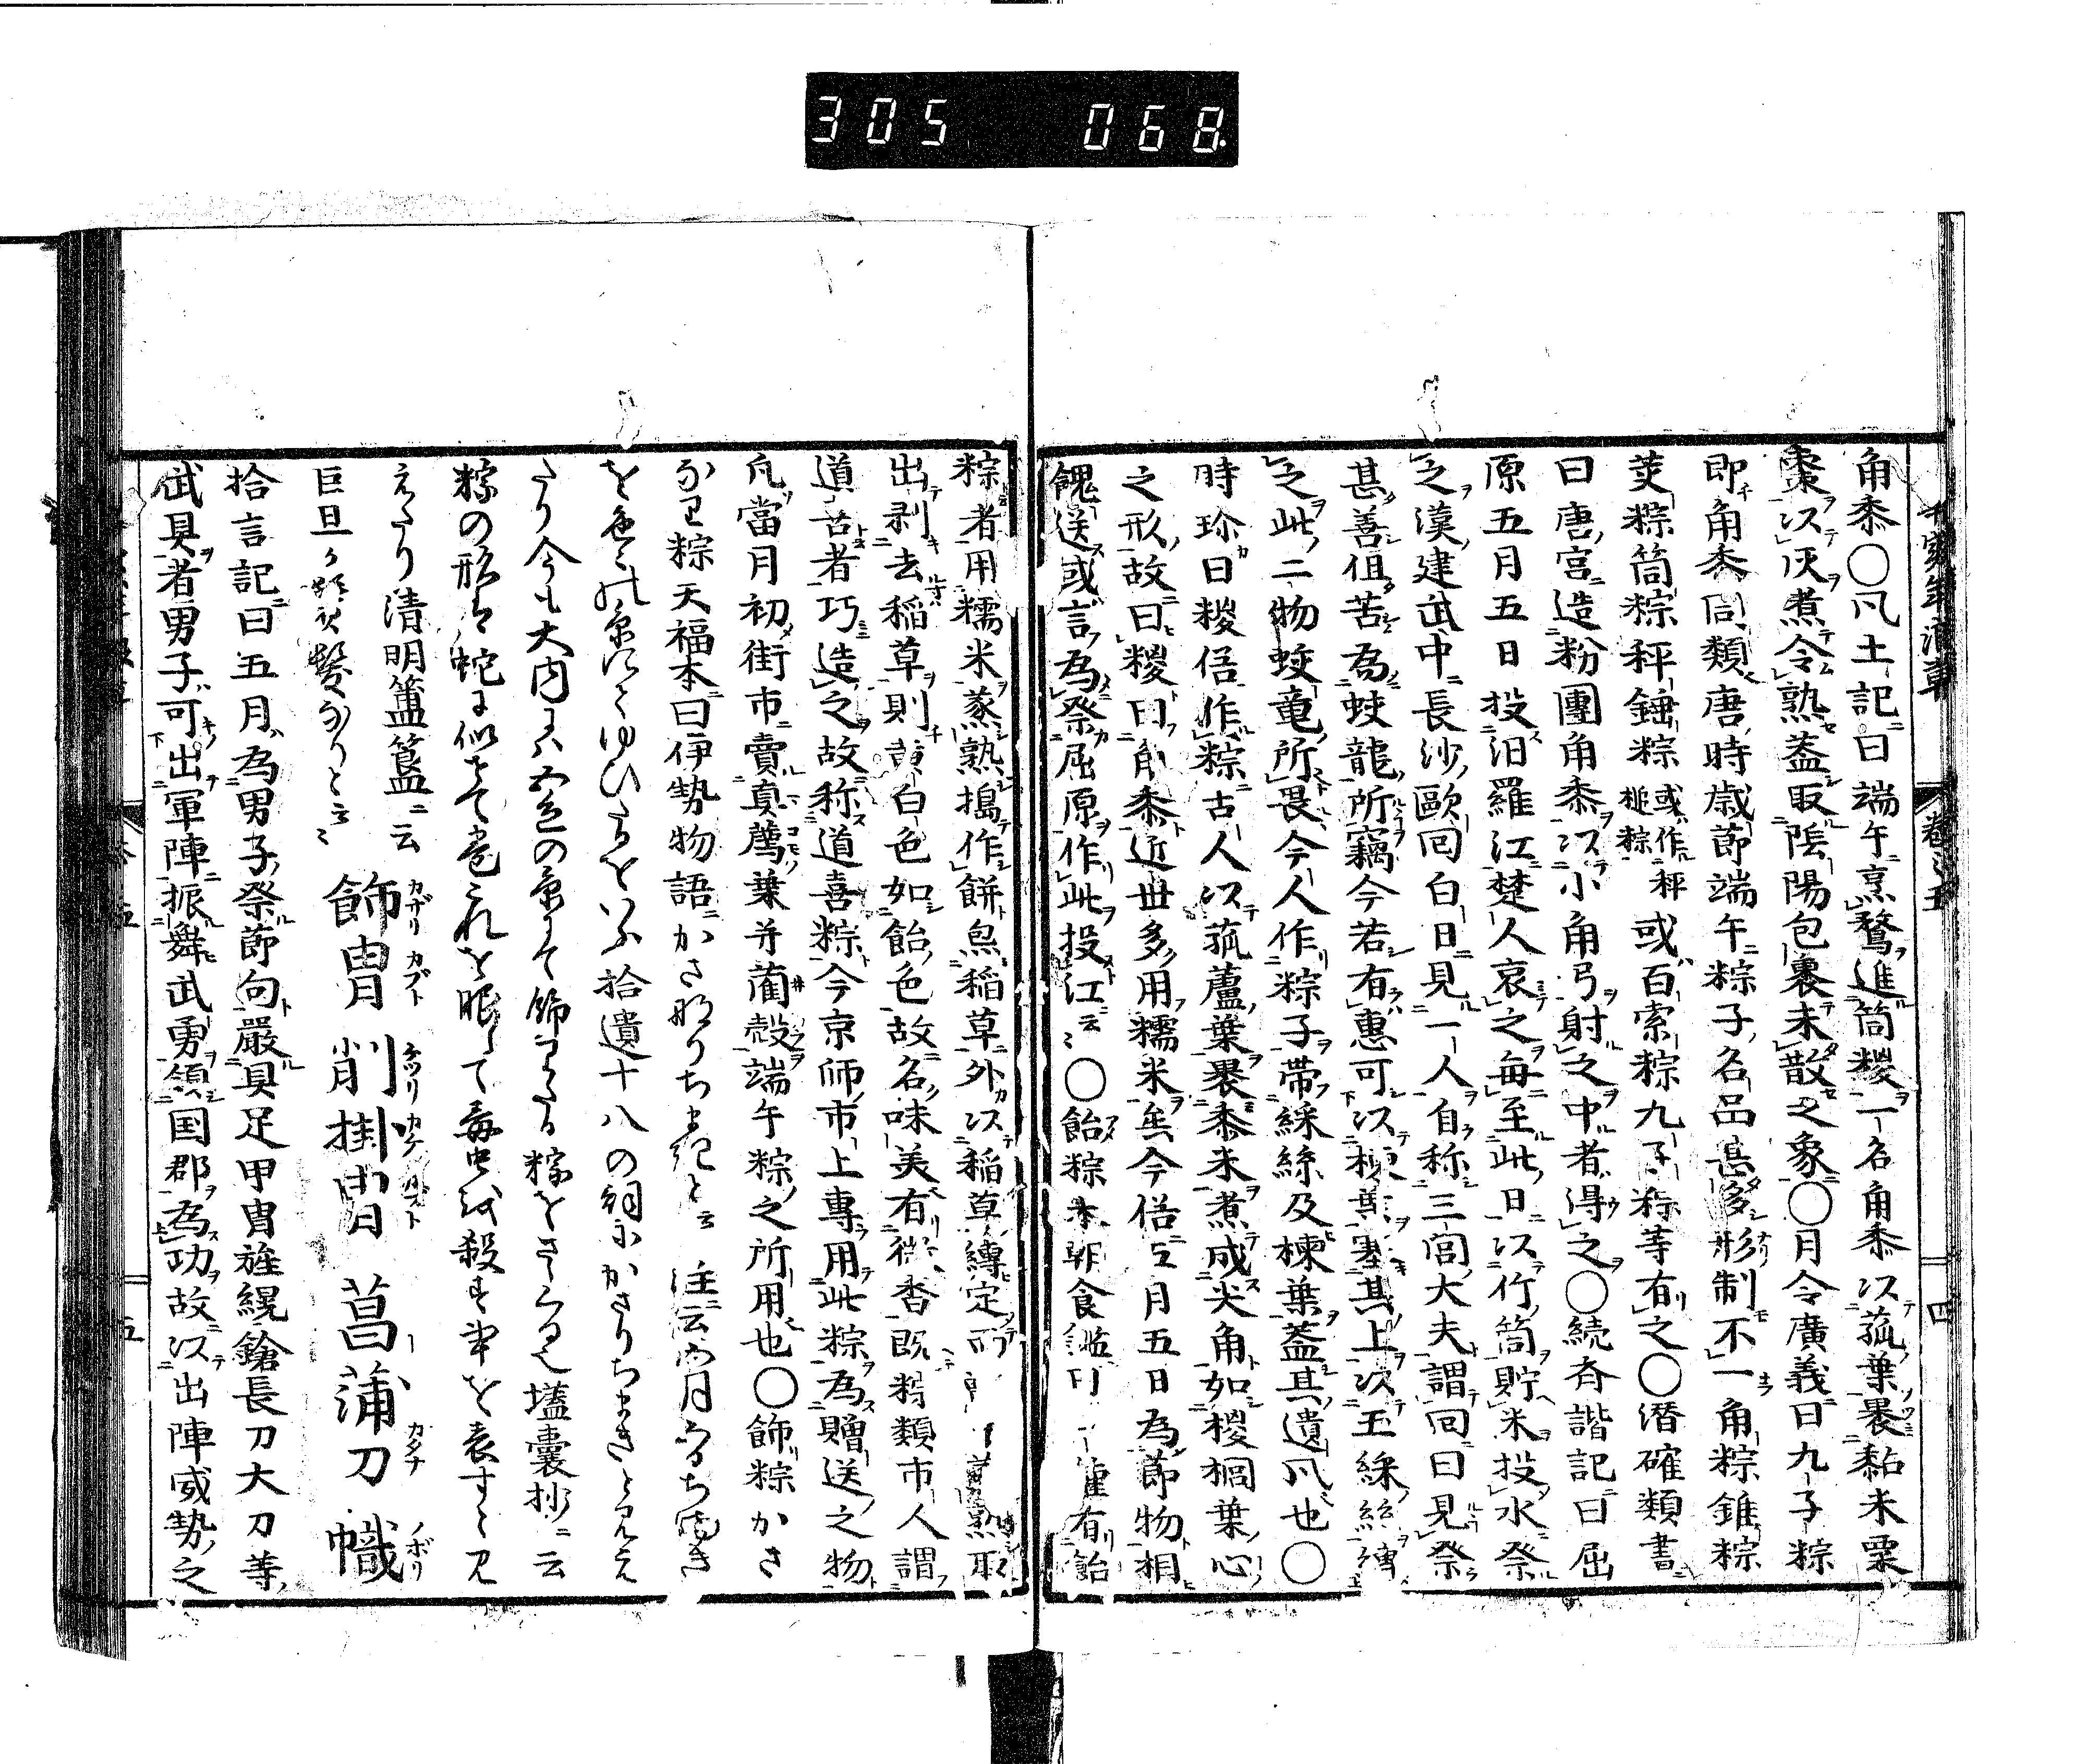 305 068
角黍○风土記曰端午烹鶩進筒糉一名角黍以菰葉褁黏米粟
棗以灰煮令熟盖取陰陽包裹未散之象○月令廣義曰九子粽
即角黍同類唐時歳節端午粽子名品甚多形制不一角粽錐粽
茭粽筒粽秤錘粽或作秤槌粽或百索粽九子粽等有之○潜確類書
曰唐宮造粉團角黍以小角弓射之中者得之○続斉諧記曰屈
原五月五日投汨羅江楚人哀之毎至此日以竹筒貯米投水祭
之漢建武中長沙歐回白日見一人自称三閭大夫謂回曰見祭
甚善但苦為蛟龍所竊今若有惠可以楝葉塞其上以五綵絲縛
之此二物蛟竜所畏今人作粽子帯綵絲及楝葉盖其遺风也○
時珍曰糉俗作粽古人以菰蘆葉褁黍米煮成尖角如椶櫚葉心
之形故曰糉曰角黍近世多用糯米矣今俗五月五日為節物相
餽送或言為祭屈原作此投江云〻○飴粽本朝食鑑曰一種有飴
粽者用糯米蒸熟搗作餅以稲草外以稲草縛定熟取
出剥去稲草則黄白色如飴色故名味美有微香既粽類市人謂
道喜者巧造之故称道喜粽今京師市上專用此粽為贈送之物
凡當月初街市賣真薦葉并藺殻端午粽之所用也○飾粽かさ
なり粽天福本曰伊勢物語かさなりちまきと云 注云五月五日ちまき
を色〻の糸にてゆひたるをいふ拾遺十八の詞にかさりちまきと見え
たり今も大内には五色の糸にて飾りたる粽をさゝくる也壒嚢抄云
粽の形は蛇に似せて巻これを服して毒虫を殺す事を表すと見
えたり清明簠簋云
巨旦か鬢髪なりと云〻
飾冑 カザリカブト 削掛冑 ケツリカケカブト 菖蒲刀 ―カタナ 幟 ノボリ
拾言記曰五月為男子祭節句嚴具足甲冑旌縨鎗長刀大刀等
武具者男子可出軍陣振舞武勇領国郡為功故以出陣威勢之
巻之五 四
五